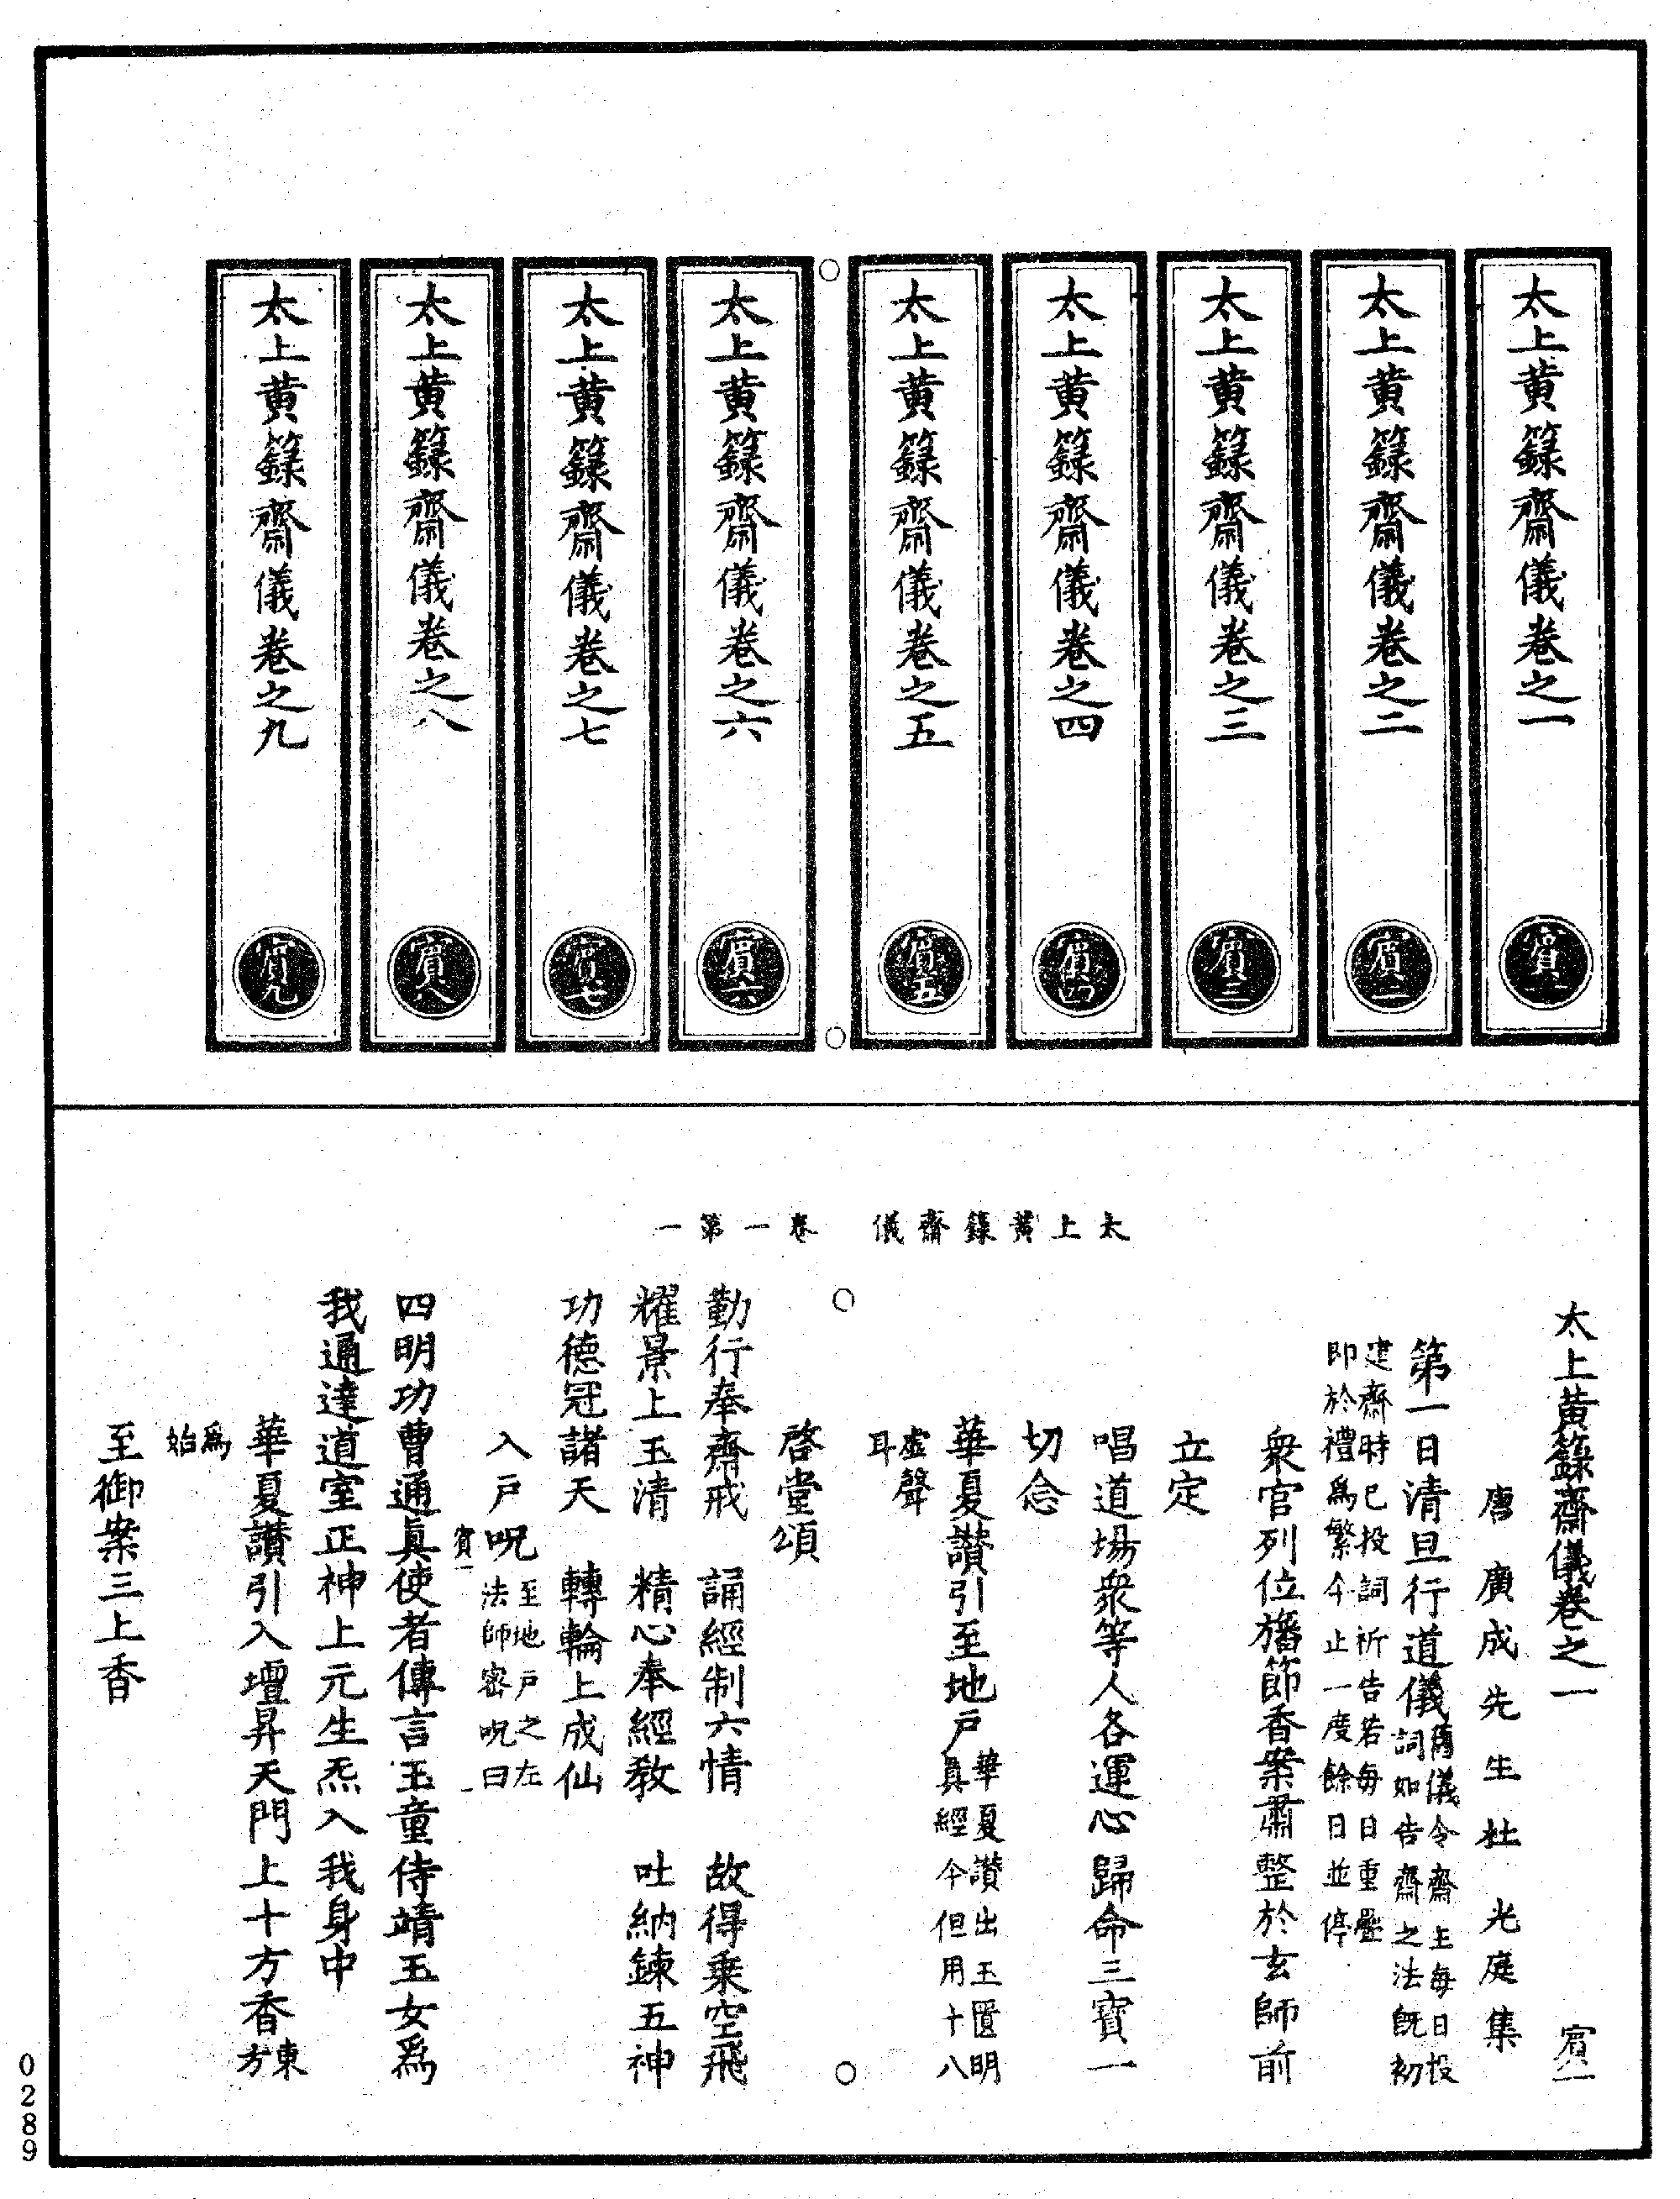 太上黃籙齋儀卷之一
賓一
太上黃籙齋儀卷之二
賓二
太上黃籙齋儀卷之三
賓三
太上黃籙齋儀卷之四
賓四
太上黃籙齋儀卷之五
賓五
太上黃籙齋儀卷之六
賓六
太上黃籙齋儀卷之七
賓七
太上黃籙齋儀卷之八
賓八
太上黃籙齋儀卷之九
賓九
太上黃籙齋儀卷之一 賓一
唐廣成先生杜光庭集
第一日清旦行道儀舊儀令齋主每日投
詞如告齋之法既初
建齋時已投詞祈告若每日重疊
即於禮為繁今止一度餘日並停
衆官列位旛節香案肅整於玄師前
立定
唱道場衆等人各運心歸命三寶一
切念
華夏讃引至地戶華夏讃出玉匱明
真經今但用十八
虛聲
耳
太上黃籙齋儀 卷一第一
啓堂頌
勤行奉齋戒 誦經制六情 故得乗空飛
耀景上玉清 精心奉經教 吐納鍊五神
功德冠諸天 轉輪上成仙
入戶呪至地戶之左
法師密呪曰
賓一 一
四明功曹通眞使者傳言玉童侍靖玉女爲
我通達道室正神上元生炁入我身中
華夏讃引入壇昇天門上十方香東
方
爲
始
至御案三上香
0289